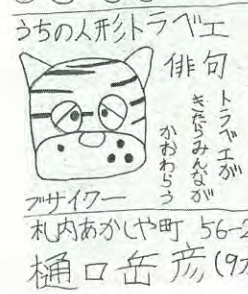 うちの人形トラベエ
俳句
トラベエが
きたらみんなが
かおわらう
ブサイクー
札内あかしや町 56-2
樋口岳彦(9才